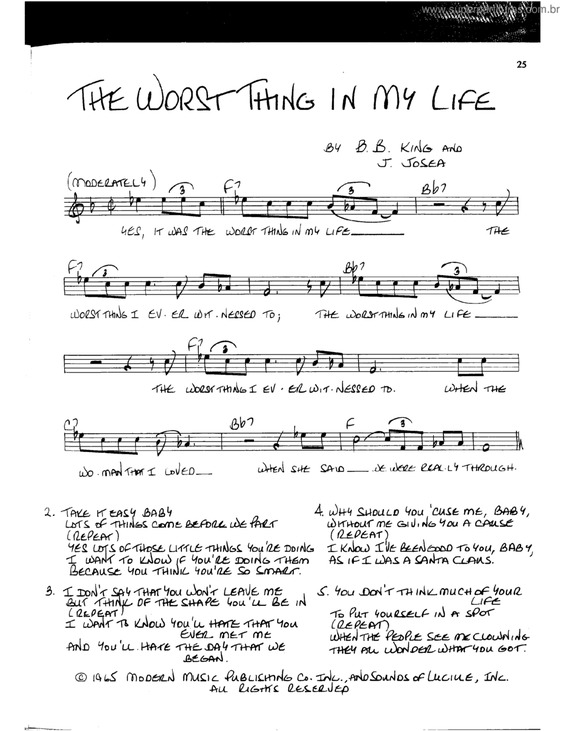 www.superpartituras.com.br
25
THE WORST THING IN MY LIFE
BY B.B. KING AND
J. JOSEA
(MODERATELY)
3 F7 3 Bb7
YES, IT WAS THE WORST THING IN MY LIFE THE
F7 3 Bb7 3
WORST THING I EV-ER WIT-NESSED TO; THE WORST THING IN MY LIFE
F7 3
THE WORST THING I EV-ER WIT-NESSED TO. WHEN THE
C7 Bb7 F 3
WO-MAN THAT I LOVED WHEN SHE SAID WE WERE REAL-LY THROUGH.
2. TAKE IT EASY BABY
LOTS OF THINGS COME BEFORE WE PART
(REPEAT)
YES LOTS OF THOSE LITTLE THINGS YOU'RE DOING
I WANT TO KNOW IF YOU'RE DOING THEM
BECAUSE YOU THINK YOU'RE SO SMART.
3. I DON'T SAY THAT YOU WON'T LEAVE ME
BUT THINK OF THE SHAPE YOU'LL BE IN
(REPEAT)
I WANT TO KNOW YOU'LL HATE THAT YOU
EVER MET ME
AND YOU'LL HATE THE DAY THAT WE
BEGAN.
4. WHY SHOULD YOU 'CUSE ME, BABY,
WITHOUT ME GIVING YOU A CAUSE
(REPEAT)
I KNOW I'VE BEEN GOOD TO YOU, BABY,
AS IF I WAS A SANTA CLAUS.
5. YOU DON'T THINK MUCH OF YOUR
LIFE
TO PUT YOURSELF IN A SPOT
(REPEAT)
WHEN THE PEOPLE SEE ME CLOWNING
THEY ALL WONDER WHAT YOU GOT.
© 1965 MODERN MUSIC PUBLISHING CO. INC., AND SOUNDS OF LUCILLE, INC.
ALL RIGHTS RESERVED